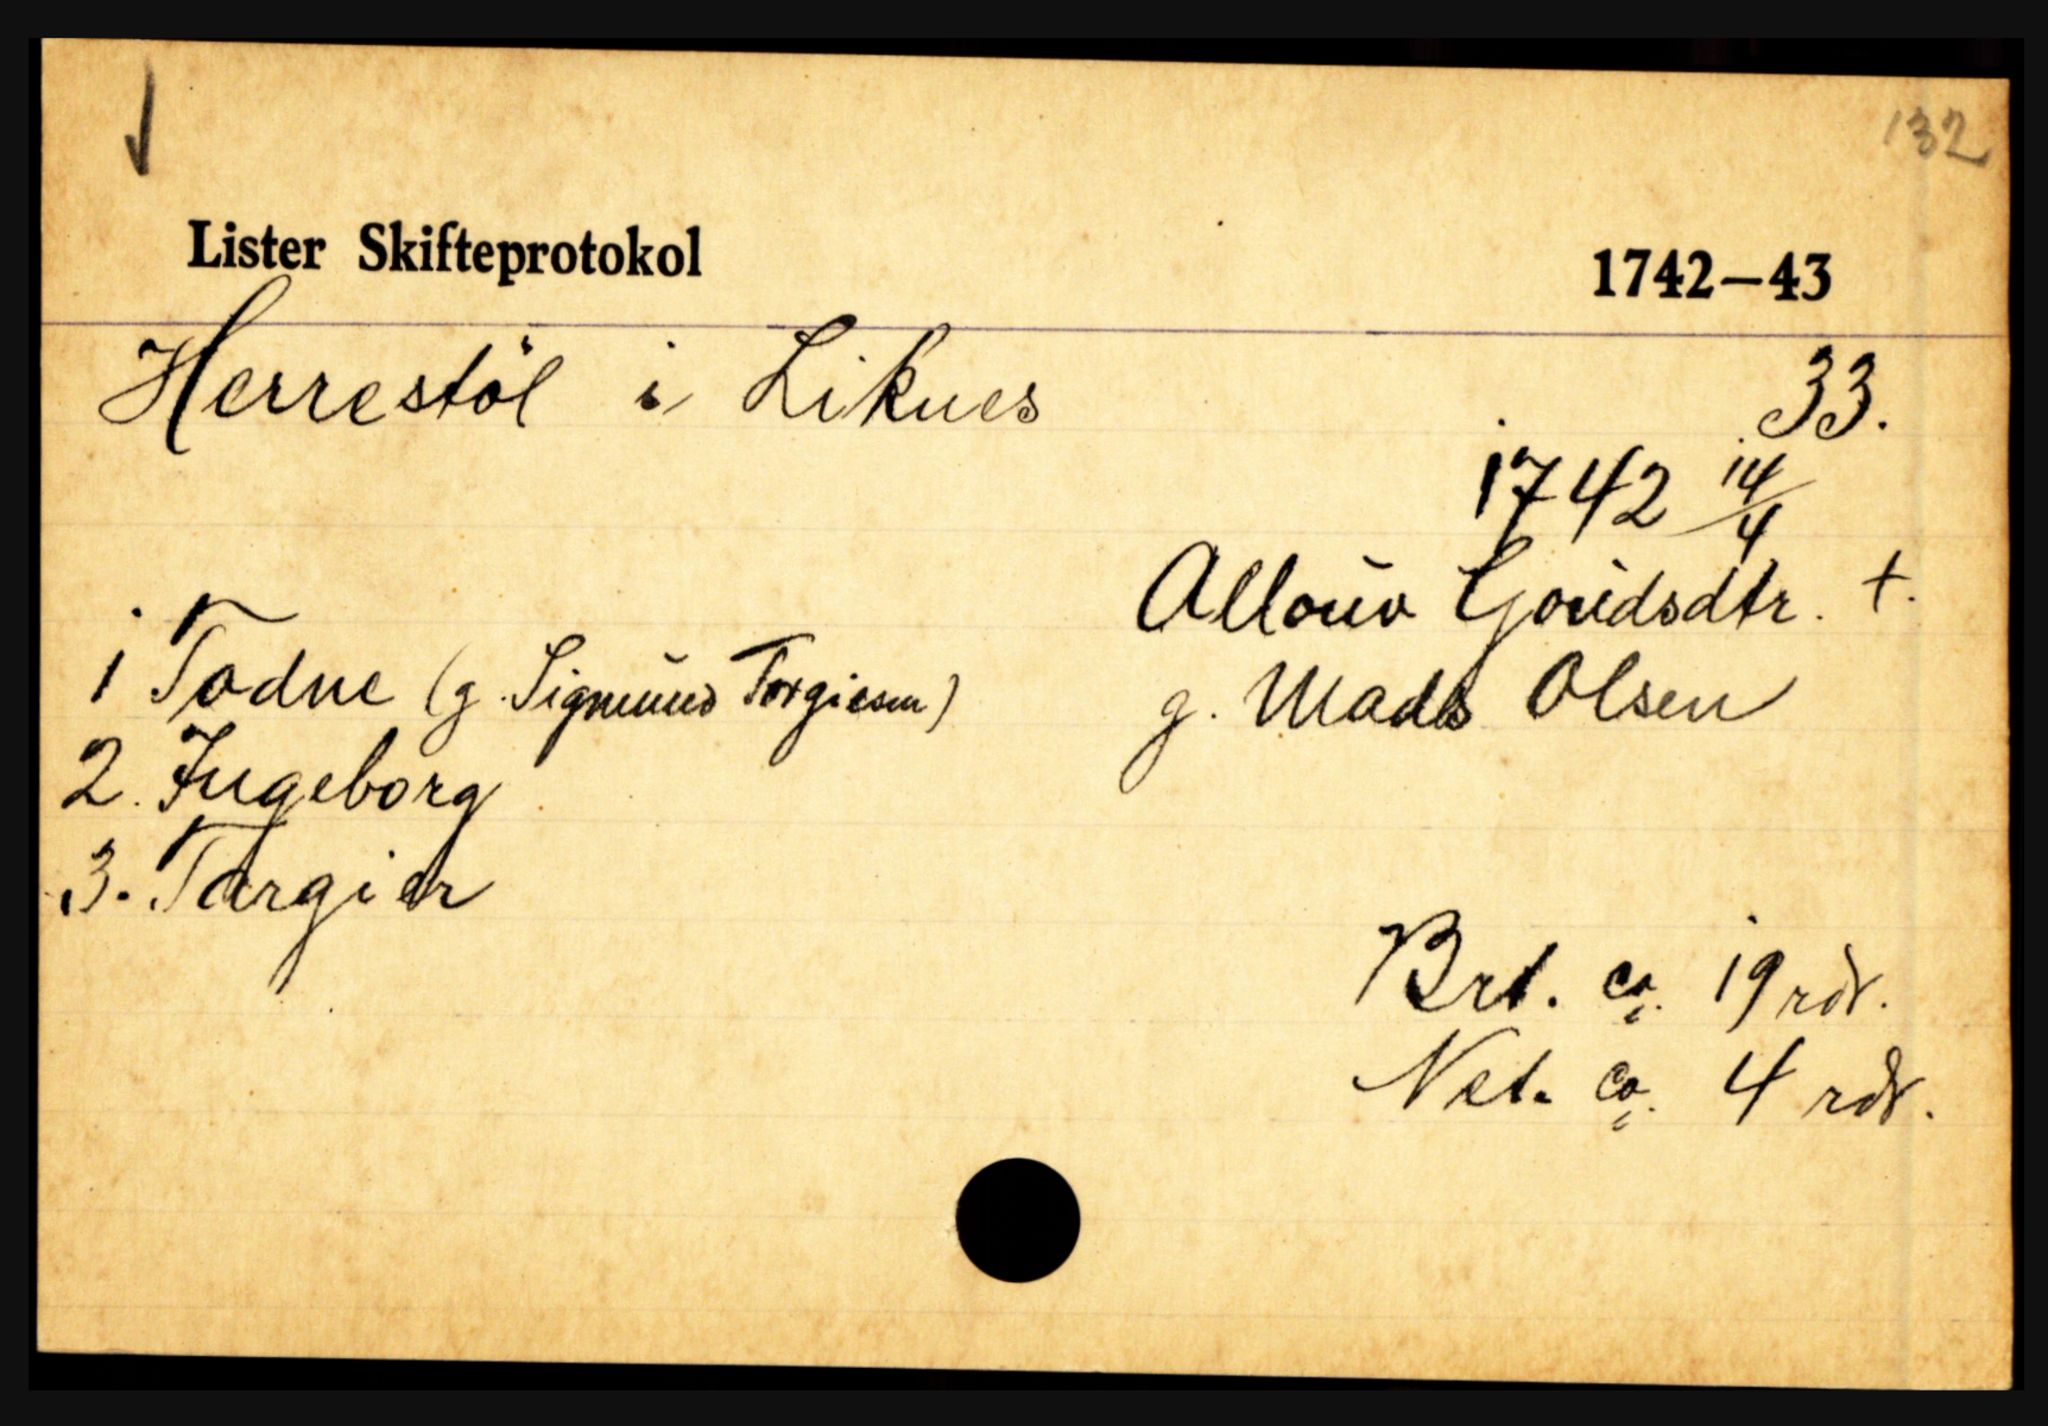 132
Lister Skifteprotokol 1742–43
Herrestöl i Liknes 33.
1742 14/4
Alloŭv Goŭdsdtr. +.
1 Todne (g. Sigmund Torgiesen) g. Mads Olsen
2. Ingeborg
3. Targier
Brt. ca. 19 rdr.
Net. ca. 4 rdr.